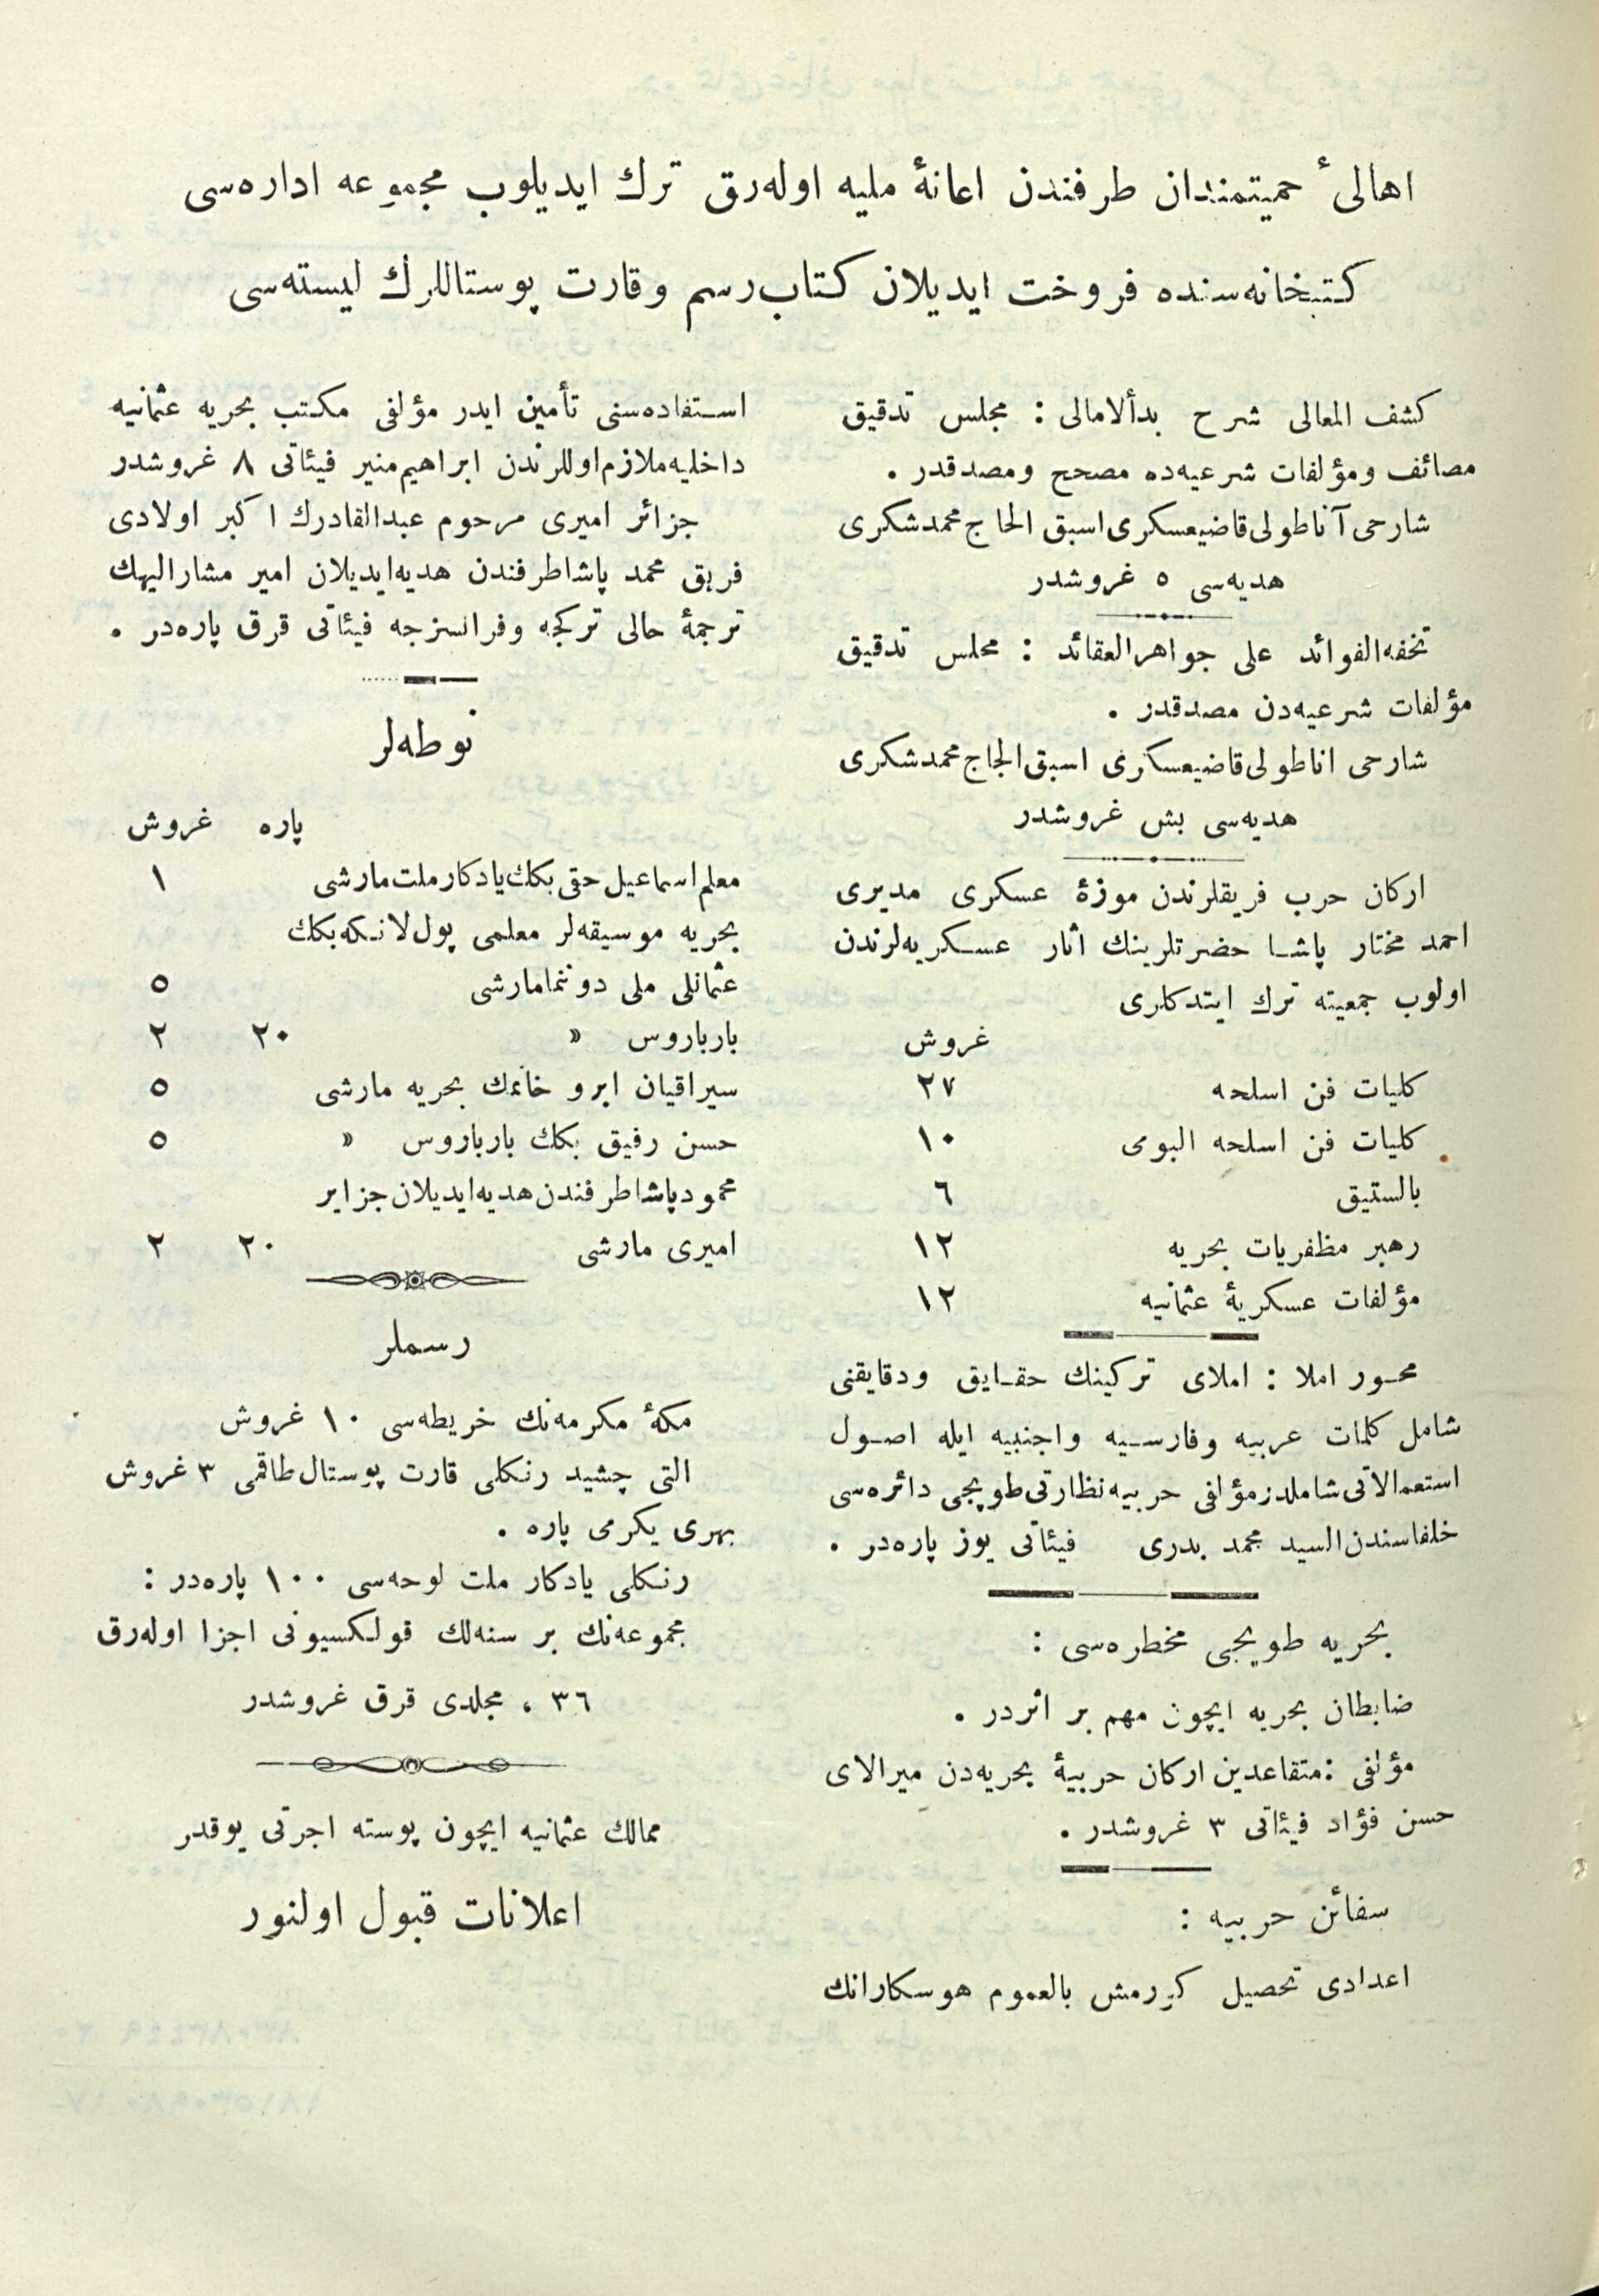 اهالیٔ حمیتمندان طرفندن اعانهٔ ملیه اوله‌رق ترك ایدیلوب مجموعه اداره‌سی
كتبخانه‌سنده فروخت ایدیلان كتاب رسم وقارت پوستاللرك لیسته‌سی
كشف المعالی شرح بدأ الامالی : مجلس تدقیق
مصائف ومؤلفات شرعیه‌ده مصحح ومصدقدر .
شارحی آناطولی قاضیعسكری اسبق الحاج محمد شكری
هدیه‌سی ٥ غروشدر
تحفه الفوائد علی جواهر العقائد : مجلس تدقیق
مؤلفات شرعیه‌دن مصدقدر .
شارحی اناطولی قاضیعسكری اسبق الحاج محمد شكری
هدیه‌سی بش غروشدر
اركان حرب فریقلرندن موزهٔ عسكری مدیری
احمد مختار پاشا حضرتلرینك اثار عسكریه‌لرندن
اولوب جمعیته ترك ایتدكلری
غروش
كلیات فن اسلحه ٢٧
كلیات فن اسلحه البومی ١٠
بالستیق ٦
رهبر مظفریات بحریه ١٢
مؤلفات عسكریهٔ عثمانیه ١٢
محور املا : املای تركینك حقایق ودقایقنی
شامل كلمات عربیه وفارسیه واجنبیه ایله اصول
استعمالاتی شاملدر مؤلفی حربیه نظارتی طوپجی دائره‌سی
خلفاسندن السید محمد بدری فیئاتی یوز پاره‌در .
بحریه طوپجی مخطره‌سی :
ضابطان بحریه ایچون مهم بر اثردر .
مؤلفی : متقاعدین اركان حربیهٔ بحریه‌دن میرالای
حسن فؤاد فیئاتی ٣ غروشدر .
سفائن حربیه :
اعدادی تحصیل كورمش بالعموم هوسكارانك
استفاده‌سنی تأمین ایدر مؤلفی مكتب بحریه عثمانیه
داخلیه ملازم اوللرندن ابراهیم منیر فیئاتی ٨ غروشدر
جزائر امیری مرحوم عبدالقادرك اكبر اولادی
فریق محمد پاشا طرفندن هدیه ایدیلان امیر مشار الیهك
ترجمهٔ حالی تركجه وفرانسزجه فیئاتی قرق پاره‌در .
نوطه‌لر
پاره غروش
معلم اسماعیل حقی بكك یادكار ملت مارشی ١
بحریه موسیقه‌لر معلمی پول لانكه بكك
عثمانلی ملی دوننما مارشی ٥
بارباروس » ٢٠ ٢
سیراقیان ابرو خانمك بحریه مارشی ٥
حسن رفیق بكك بارباروس » ٥
محمود پاشا طرفندن هدیه ایدیلان جزایر
امیری مارشی ٢٠ ٢
رسملر
مكهٔ مكرمه‌نك خریطه‌سی ١٠ غروش
التی چشید رنكلی قارت پوستال طاقمی ٣ غروش
بهری یكرمی پاره .
رنكلی یادكار ملت لوحه‌سی ١٠٠ پاره‌در :
مجموعه‌نك بر سنه‌لك قولكسیونی اجزا اوله‌رق
٣٦ ، مجلدی قرق غروشدر
ممالك عثمانیه ایچون پوسته اجرتی یوقدر
اعلانات قبول اولنور